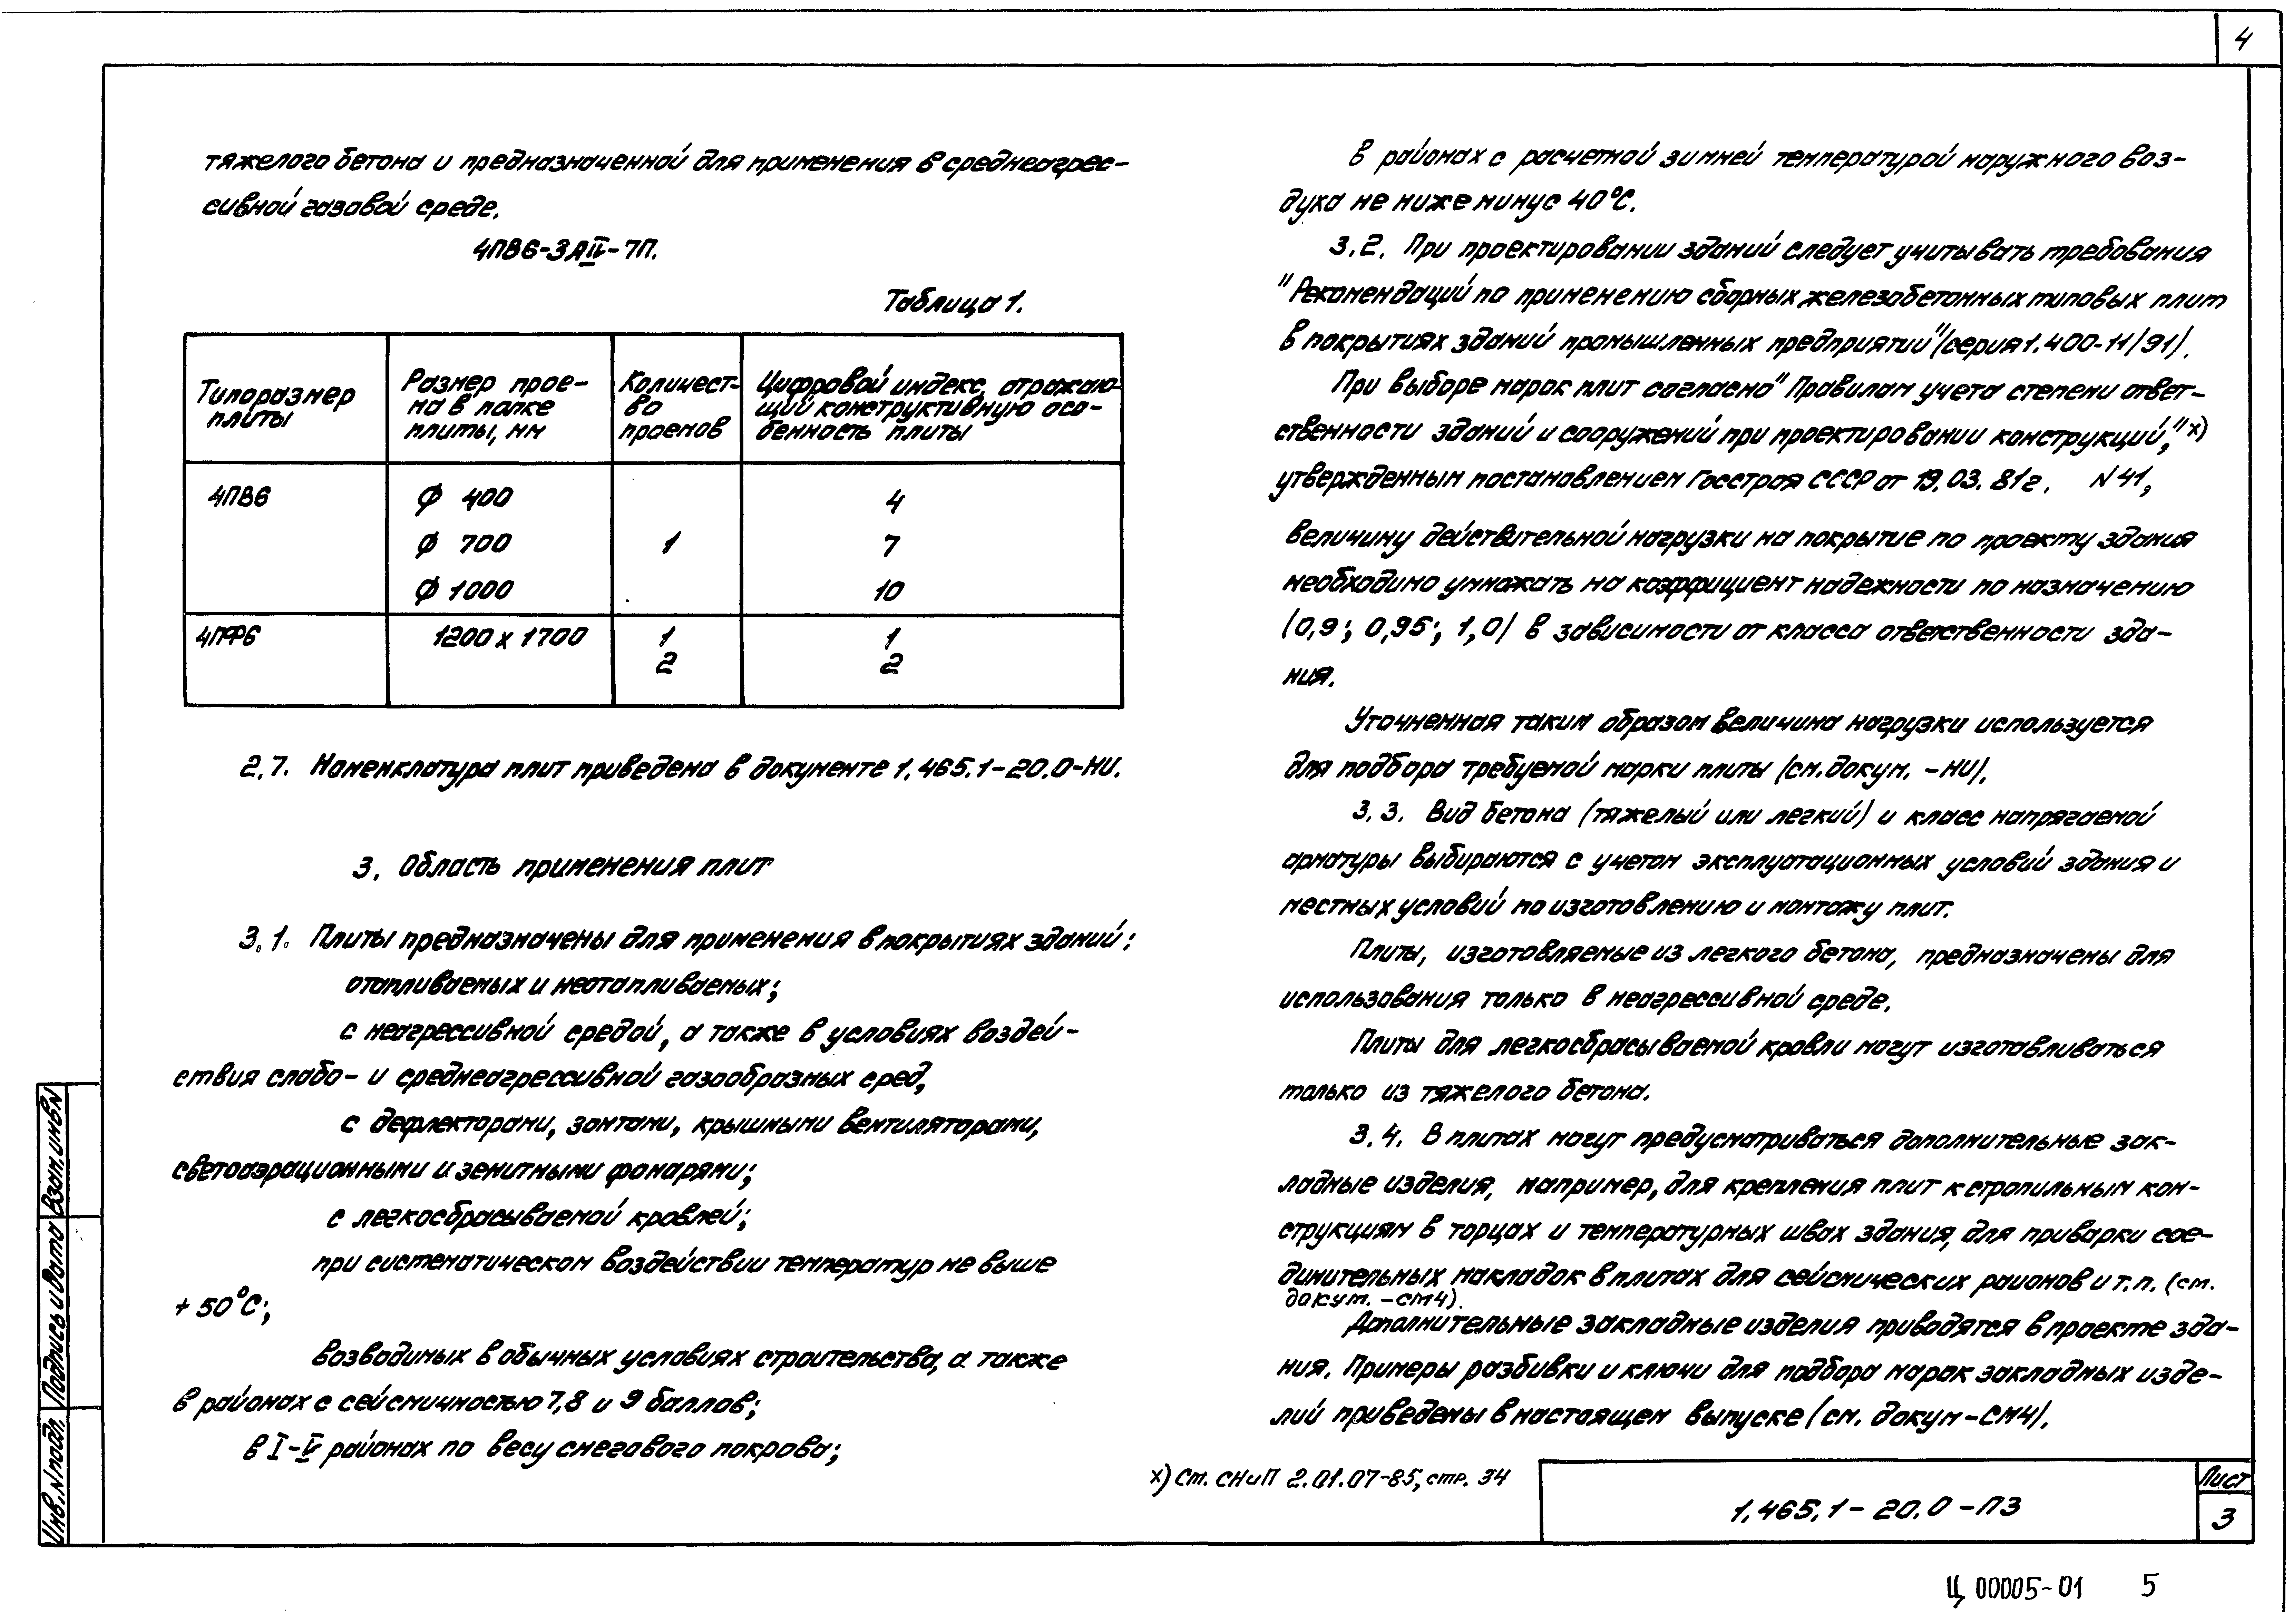 4
тяжелого бетона и предназначенной для применения в среднеагрес-
сивной газовой среде.
4ПВ6-3АIV-7П.
Таблица 1.
Типоразмер плиты
Размер прое-
ма в полке
плиты, мм
Количест-
во
проемов
Цифровой индекс, отражаю-
щий конструктивную осо-
бенность плиты
4ПВ6 ф 400 4
ф 700 1 7
ф 1000 10
4ПФ6 1200 х 1700 1 1
2 2
2.7. Номенклатура плит приведена в документе 1.465.1-20.0-НИ.
3. Область применения плит
3.1. Плиты предназначены для применения в покрытиях зданий:
отапливаемых и неотапливаемых;
с неагрессивной средой, а также в условиях воздей-
ствия слабо- и среднеагрессивной газообразных сред,
с дефлекторами, зонтами, крышными вентиляторами,
светоаэрационными и зенитными фонарями;
с легкосбрасываемой кровлей;
при систематическом воздействии температур не выше
+ 50°С;
возводимых в обычных условиях строительства, а также
в районах с сейсмичностью 7,8 и 9 баллов;
в I-V районах по весу снегового покрова;
в районах с расчетной зимней температурой наружного воз-
духа не ниже минус 40°С.
3.2. При проектировании зданий следует учитывать требования
"Рекомендаций по применению сборных железобетонных типовых плит
в покрытиях зданий промышленных предприятий" (серия 1.400-11/91).
При выборе марок плит согласно "Правилам учета степени ответ-
ственности зданий и сооружений при проектировании конструкций," х)
утвержденным постановлением Госстроя СССР от 19.03.81г. N 41,
величину действительной нагрузки на покрытие по проекту здания
необходимо умножать на коэффициент надежности по назначению
(0,9; 0,95; 1,0) в зависимости от класса ответственности зда-
ния.
Уточненная таким образом величина нагрузки используется
для подбора требуемой марки плиты (см. докум. -НИ).
3.3. Вид бетона (тяжелый или легкий) и класс напрягаемой
арматуры выбираются с учетом эксплуатационных условий здания и
местных условий по изготовлению и монтажу плит.
Плиты, изготовляемые из легкого бетона, предназначены для
использования только в неагрессивной среде.
Плиты для легкосбрасываемой кровли могут изготавливаться
только из тяжелого бетона.
3.4. В плитах могут предусматриваться дополнительные зак-
ладные изделия, например, для крепления плит к стропильным кон-
струкциям в торцах и температурных швах здания, для приварки сое-
динительных накладок в плитах для сейсмических районов и т.п. (см.
докум. -СМ4).
Дополнительные закладные изделия приводятся в проекте зда-
ния. Примеры разбивки и ключи для подбора марок закладных изде-
лий приведены в настоящем выпуске (см. докум-СМ4).
х) Ст. СНиП 2.01.07-85, стр. 34
1.465.1-20.0-ПЗ
Лист
3
Инв. N подл. Подпись и дата Взам. инв N
Ц 00005-01 5